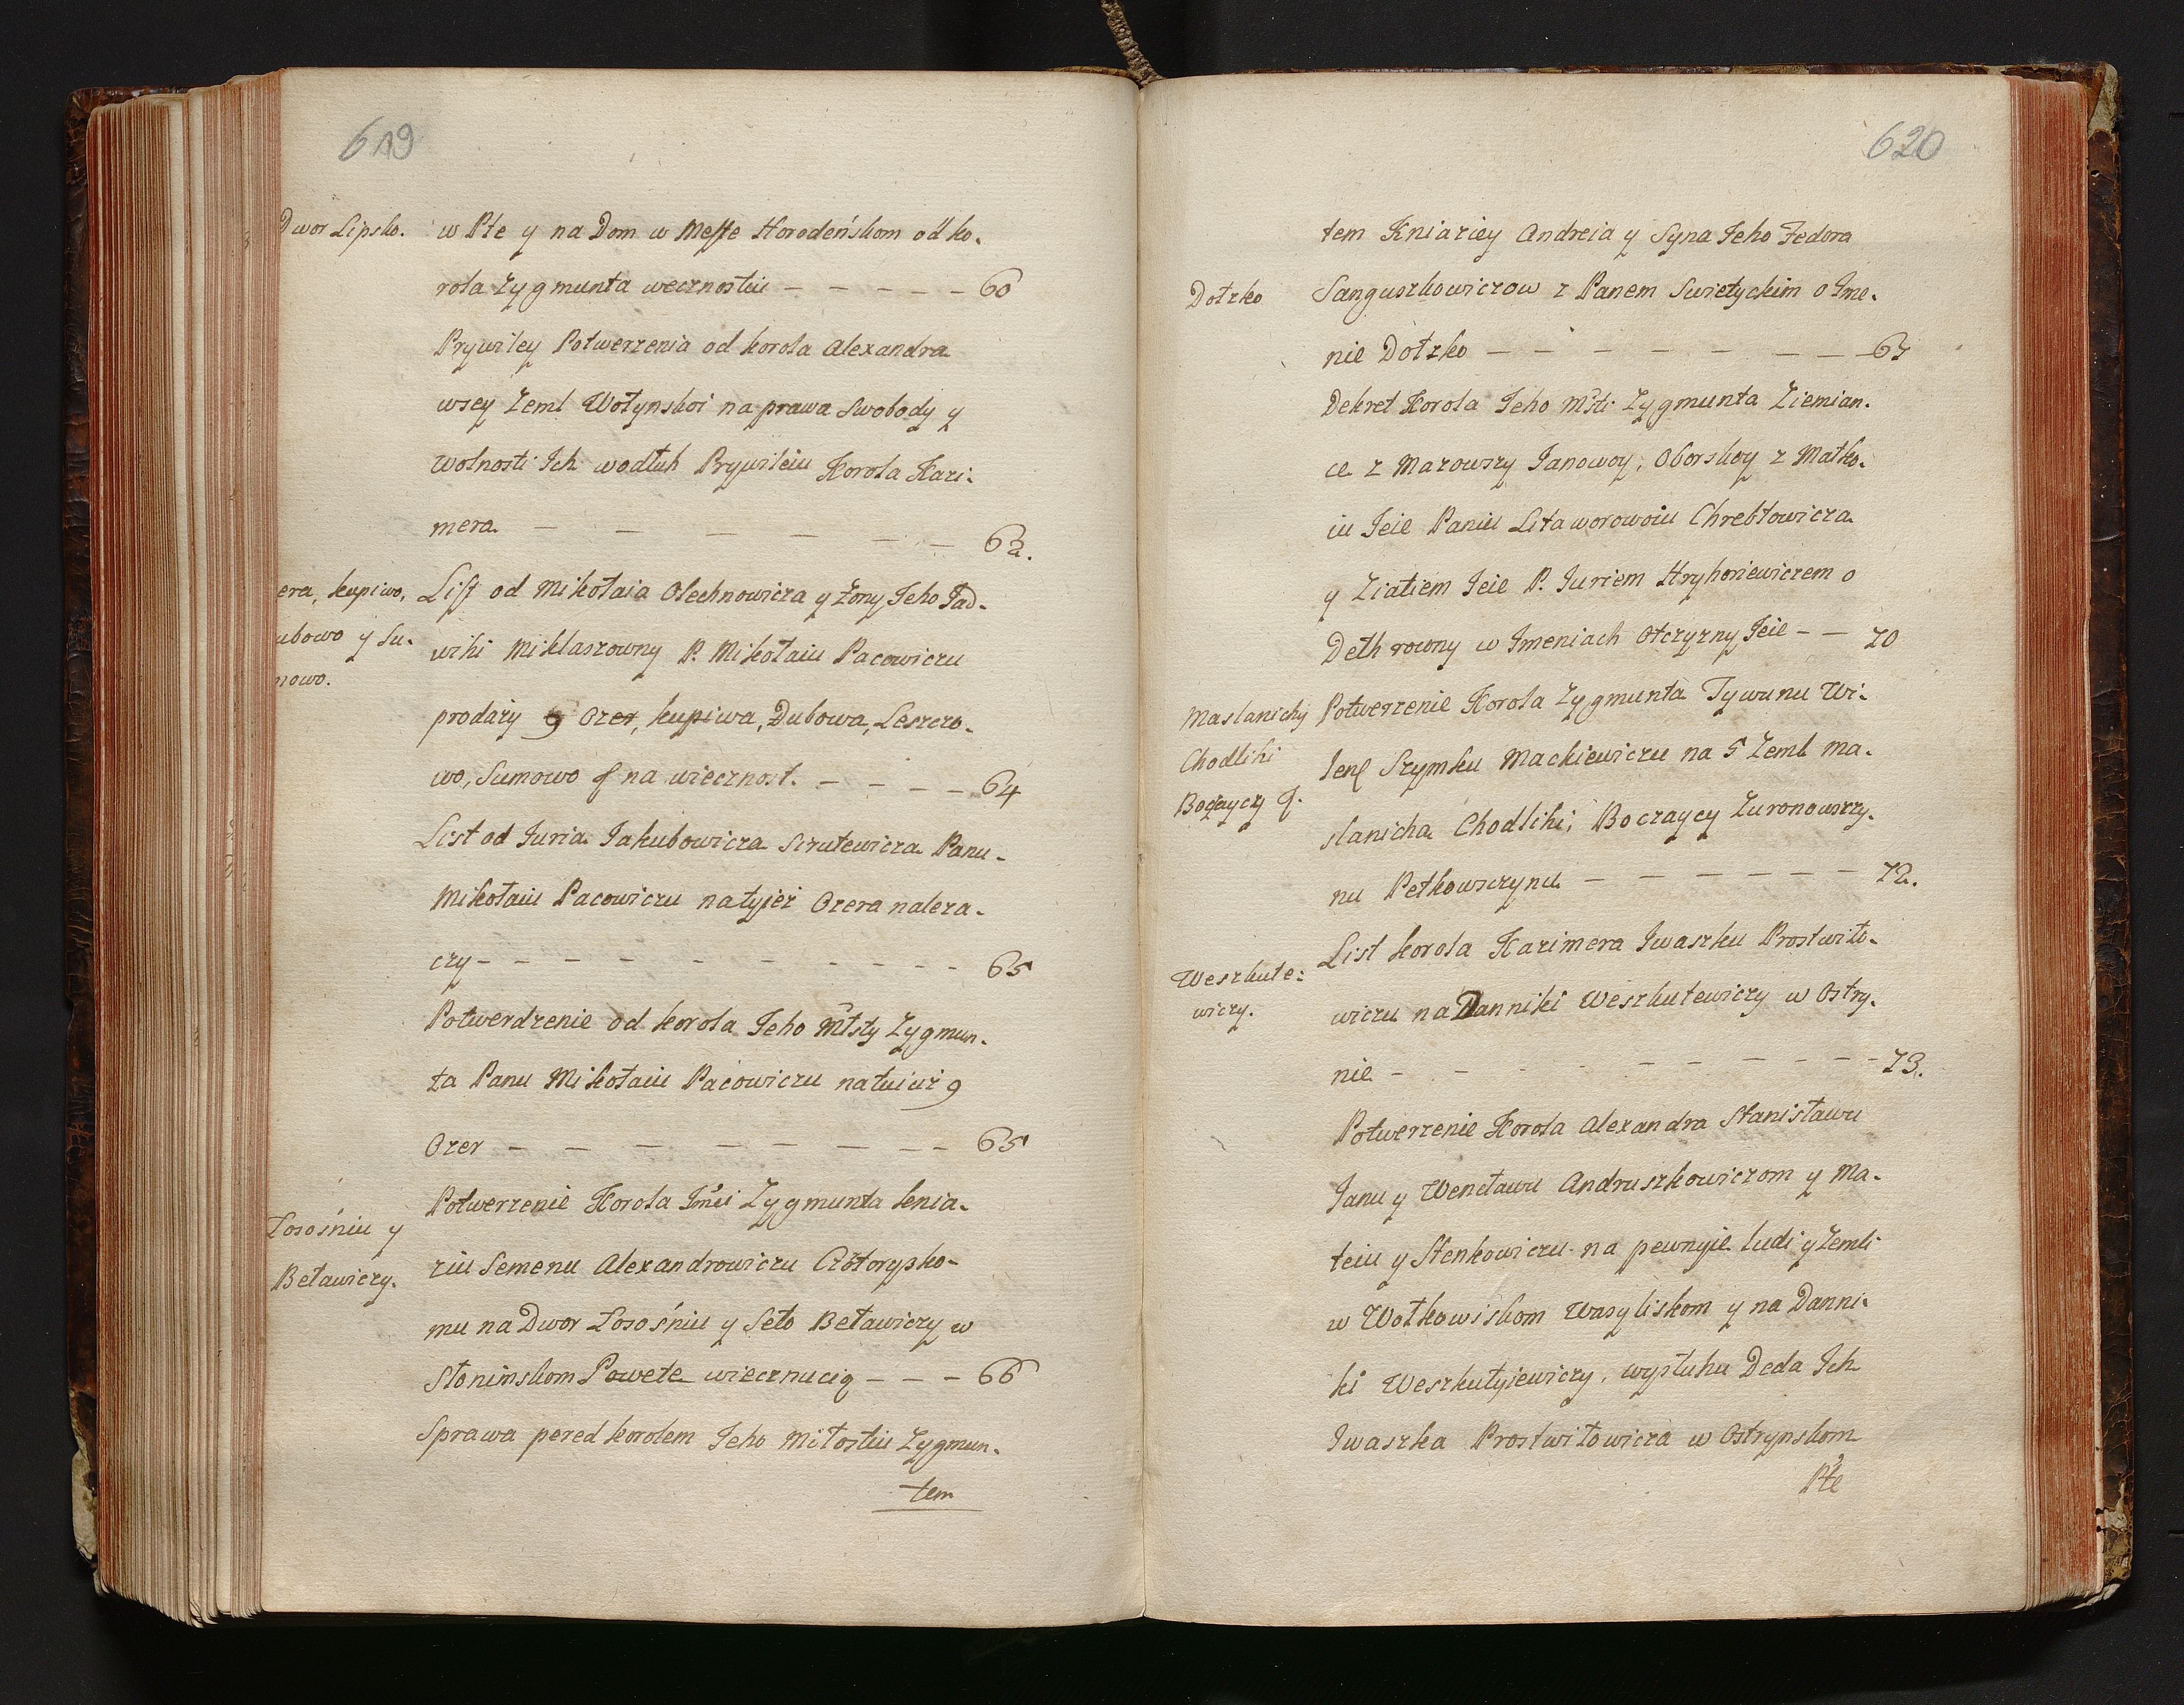 619
Dwor Lipsko.
w Pte y na Dom w Meste Horodeńskom od ko-
rola Zygmunta wecznostiu - - - - - 60
Prywiley Potwerzenia od korola Alexandra
wsey Zeml Wołynskoi na prawa Swobody y
Wolnosti Ich wodłuh Prywileiu Korola Kazi-
mera. - - - - - - 62.
era, kupiwo,
ubowo y Su-
nowo.
List od Mikołaia Olechnowicza y Zony Jeho Jad-
wihi Miklaszowny P. Mikołaiu Pacowiczu
prodaży 9 Ozer, kupiwa, Dubowa, Leszczo-
wo, Sumowo na wiecznost. - - - - 64
List od Juria Jakubowicza Szutewicza Panu
Mikołaiu Pacowiczu natyież Ozera naleza-
czy - - - - - - - - - 65
Potwerdzenie od korola Jeho Młsty Zygmun-
ta Panu Mikołaiu Pacowiczu natuiuż 9
Ozer - - - - - - - - 65
Łosośniu y
Beławiczy.
Potwerzenie Korola Zygmunta knia-
ziu Semenu Alexandrowiczu Człorysko-
mu na Dwor Łosośniu y Seło Beławiczy w
Słonimskom Powete wiecznuciq - - - 66
Sprawa pered korolem Jeho Miłostiu Zygmun-
tem
620
tem Kniaziey Andreia y Syna Jeho Fedora
Dołzko
Sanguszkowiczow z Panem Swietyckim o Ime-
nie Dołzko - - - - - - - - 67
Dekret Korola Jeho Mṡti Zygmunta Ziemian-
ce z Mazowszy Janowoy, Oborskoy z Matko-
iu Jeie Paniu Litaworowoiu Chrebtowicza
y Ziatiem Jeie P. Juriem Hryhoriewiczem o
Deth rowny w Imeniach Otczyzny Jeie - - 70
Maslanichy
Chodlihi
Boczayczy
Potwerzenie Korola Zygmunta Tywunu Wi-
len Szymku Mackiewiczu na 5 Zeml ma-
slanicha Chodlihi, Boczaycy Zuronowszzy-
nu Petkowszzynu - - - - - - 72.
Weszkute-
wiczy.
List korola Kazimera Iwaszku Prostwiło-
wiczu na Danniki Weszkutewiczy w Ostry-
nie - - - - - - - - 73.
Potwerzenie Korola Alexandra Stanisławu
Janu y Wencławu Andruszkowiczom y Ma-
teiu y Stenkowiczu na pewnyie ludi y Zemli
w Wołkowiskom Wasyliskom y na Danni-
ki Weszkutyiewiczy, wysłuhu Deda Ich
Iwaszka Prostwiłowicza w Ostrynskom
Pte